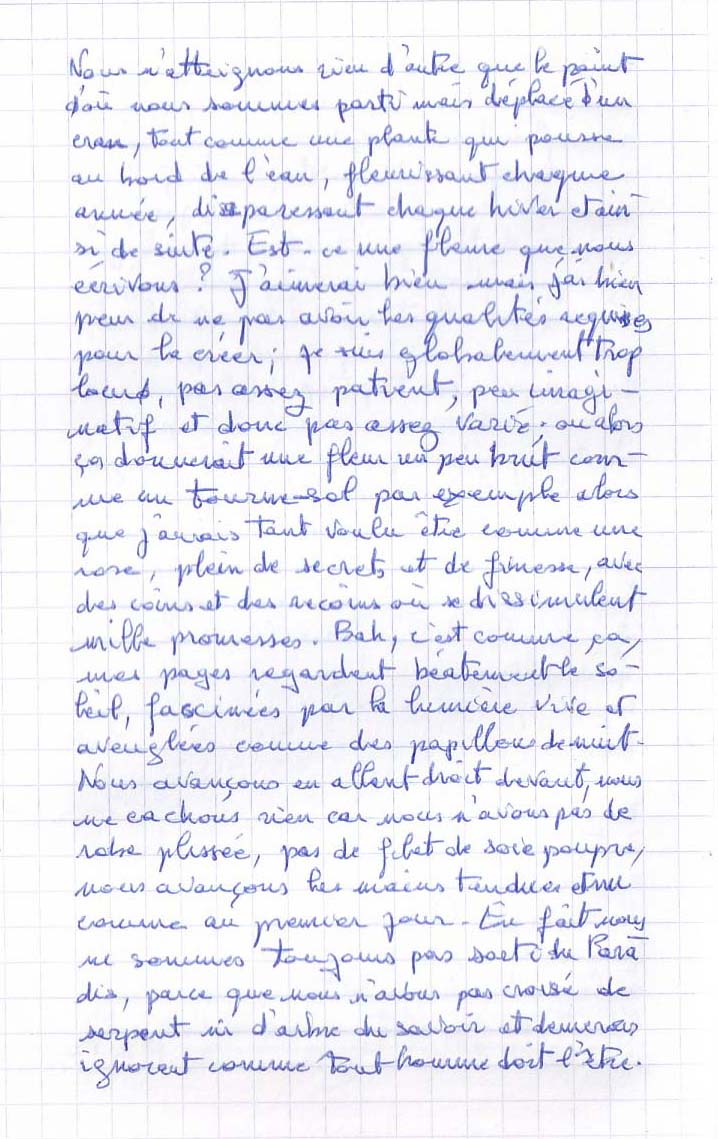 Nous n'atteignons rien d'autre que le point
d'où nous sommes parti mais déplacé d'un
cran, tout comme une plante qui pousse
au bord de l'eau, fleurissant chaque
année, disparessant chaque hiver et ain
si de suite. Est-ce une fleure que nous
écrivons ? J'aimerai bien mais j'ai bien
peur de ne pas avoir les qualités requises
pour la créer ; je suis globalement trop
lourd, pas assez patient, peu imagi-
natif et donc pas assez varié ; ou alors
ça donnerait une fleur un peu brut com-
me un tourne-sol par exemple alors
que j'aurais tant voulu être comme une
rose, plein de secrets et de finesse, avec
des coins et des recoins où se dissimulent
mille promesses. Bah, c'est comme ça,
mes pages regardent béatement le so-
leil, fascinées par la lumière vive et
aveuglées comme des papillons de nuit.
Nous avançons en allant droit devant, nous
ne cachons rien car nous n'avons pas de
robe plissée, pas de filet de soie poupre,
nous avançons les mains tendues et nu
comme au premier jour. En fait nous
ne sommes toujours pas sorti du Para
dis, parce que nous n'avons pas croisé de
serpent ni d'arbre du savoir et demeurons
ignorent comme tout homme doit l'être.